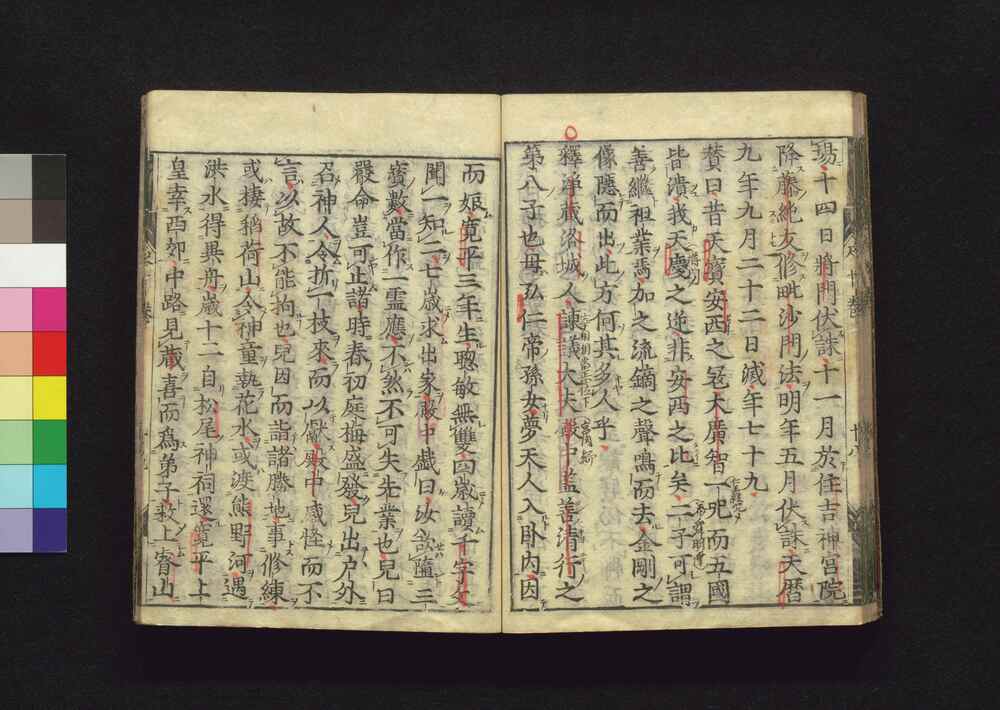 場十四日將門伏誅十一月於住吉神宮院
降藤純友修毗沙門法明年五月伏誅天曆
九年九月二十二日滅年七十九
賛曰昔天寶安西之冦大廣智一咒而五國
皆潰我天慶之逆非安西之比矣二子可謂
善繼祖業焉加之流鏑之聲鳴而去金剛之
像隱而出此方何其多人乎
釋淨藏洛城人諌議大夫殿中監善清行之
第八子也母弘仁帝孫女夢天人入卧内因
而娠寛平三年生聰敏無雙四歲讀千字文
聞一知二七歲求出家殿中戲曰汝欲墮三
寳數當作一靈應不然不可失先業也兒曰
嚴命豈可止諸時春初庭梅盛發兒出户外
召神人令折一枝來而以獻殿中感怪而不
言以故不能拘也兒因而詣諸勝地事修練
或棲稻荷山令神童執花水或渡熊野河遇
洪水得異舟歲十二自松尾神祠還寛平上
皇幸西郊中路見藏喜而爲弟子敎上睿山